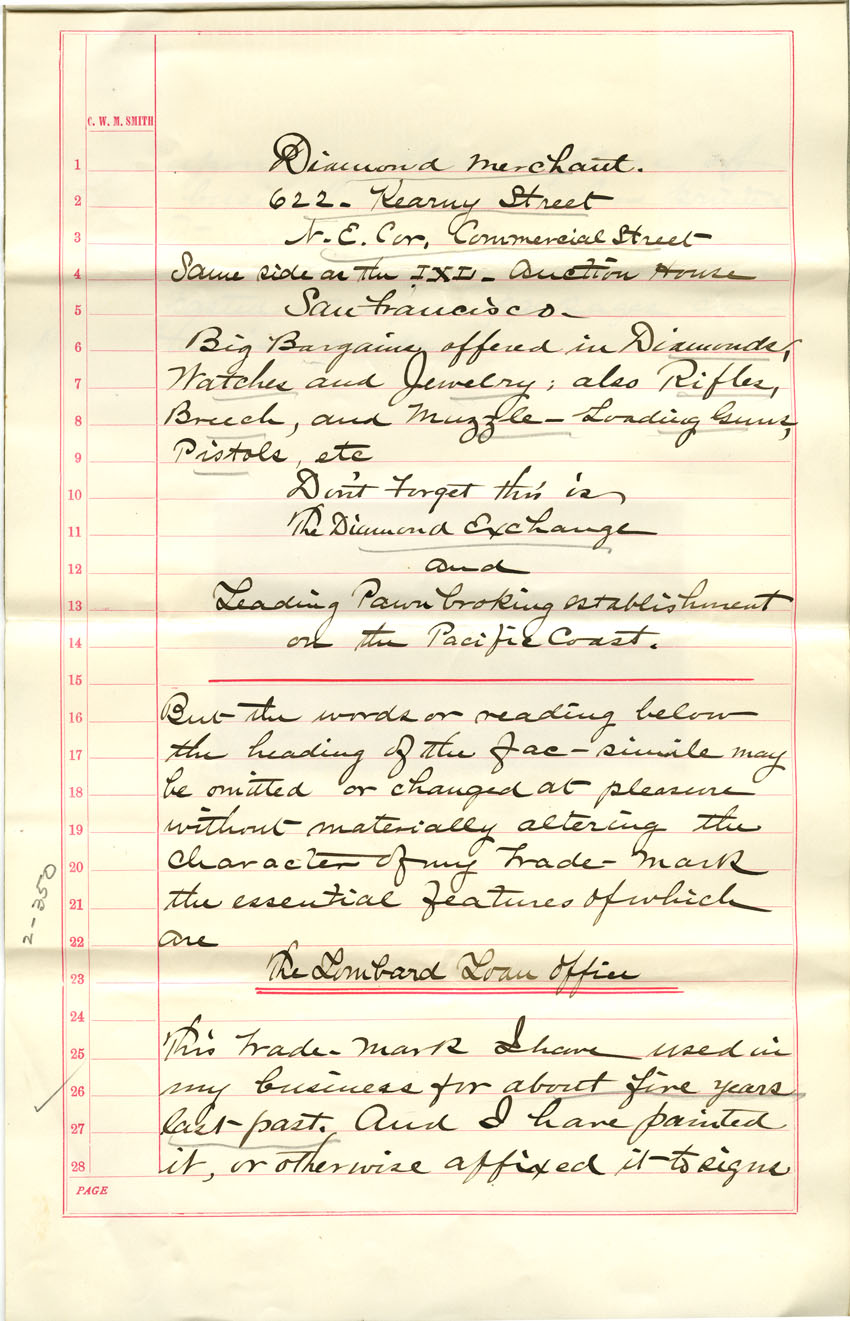 C. W. M. SMITH
1 Diamond Merchant.
2 622 - Kearny Street
3 N. E. Cor, Commercial Street
4 Same side as the IXL - Auction House
5 San Francisco -
6 Big Bargains offered in Diamonds,
7 Watches and Jewelry; also Rifles,
8 Breech, and Muzzle - Loading Guns,
9 Pistols, etc
10 Don't Forget this is
11 The Diamond Exchange
12 and
13 Leading Pawnbroking establishment
14 on the Pacific Coast.
15
16 But the words or reading below
17 the heading of the fac-simile may
18 be omitted or changed at pleasure
19 without materially altering the
20 character of my Trade-Mark
21 the essential features of which
22 are
23 The Lombard Loan Office
24
25 This Trade-Mark I have used in
26 my business for about five years
27 last past. And I have painted
28 it, or otherwise affixed it to signs
PAGE
2-350